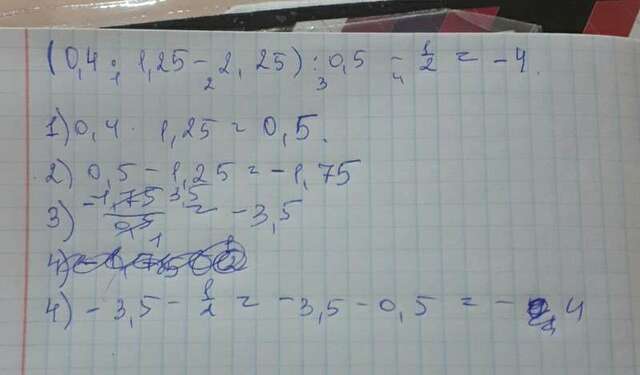 (0,4 · 1,25 - 2,25) : 0,5 - 1/2 = -4.
1 2 3 4
1) 0,4 · 1,25 = 0,5.
2) 0,5 - 1,25 = -1,75
3) -1,75 3,5 / 0,5 1 = -3,5
4) -3,5 - 1/2 = -3,5 - 0,5 = - 4